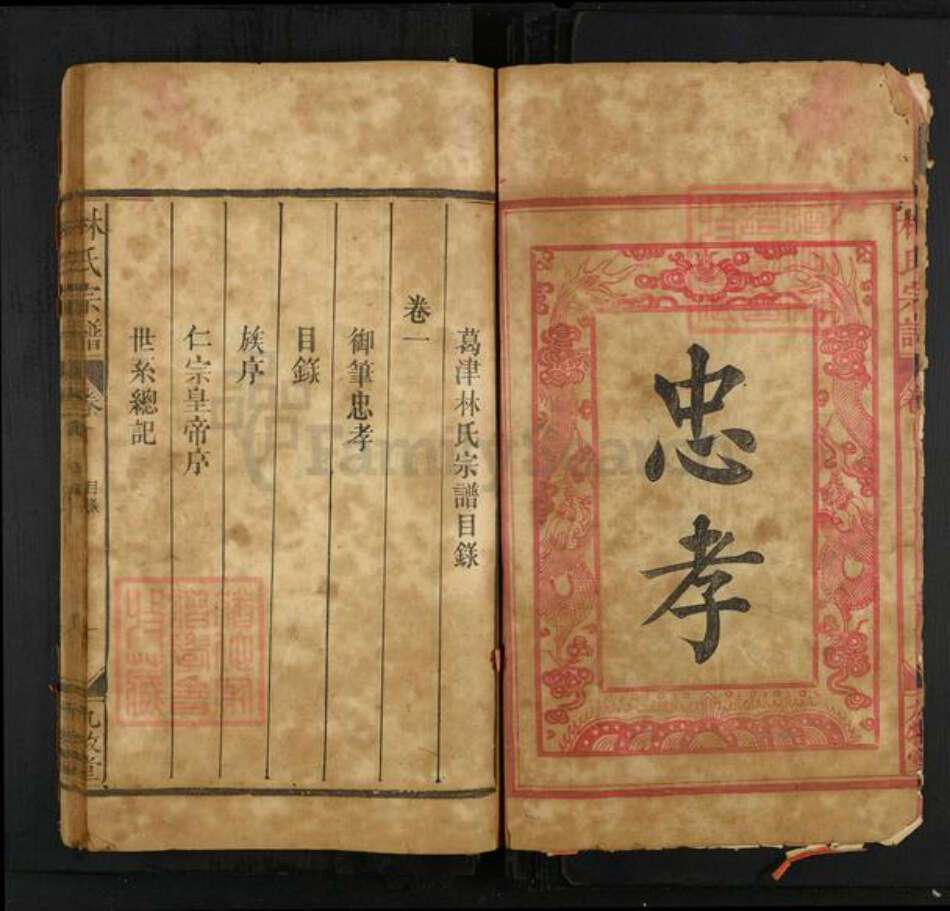 忠孝
葛津林氏宗譜目錄
卷一
御筆忠孝
目錄
族序
仁宗皇帝序
世系總記
林氏宗譜
卷一
目錄
一
九牧堂
林氏宗譜
FamilySearch